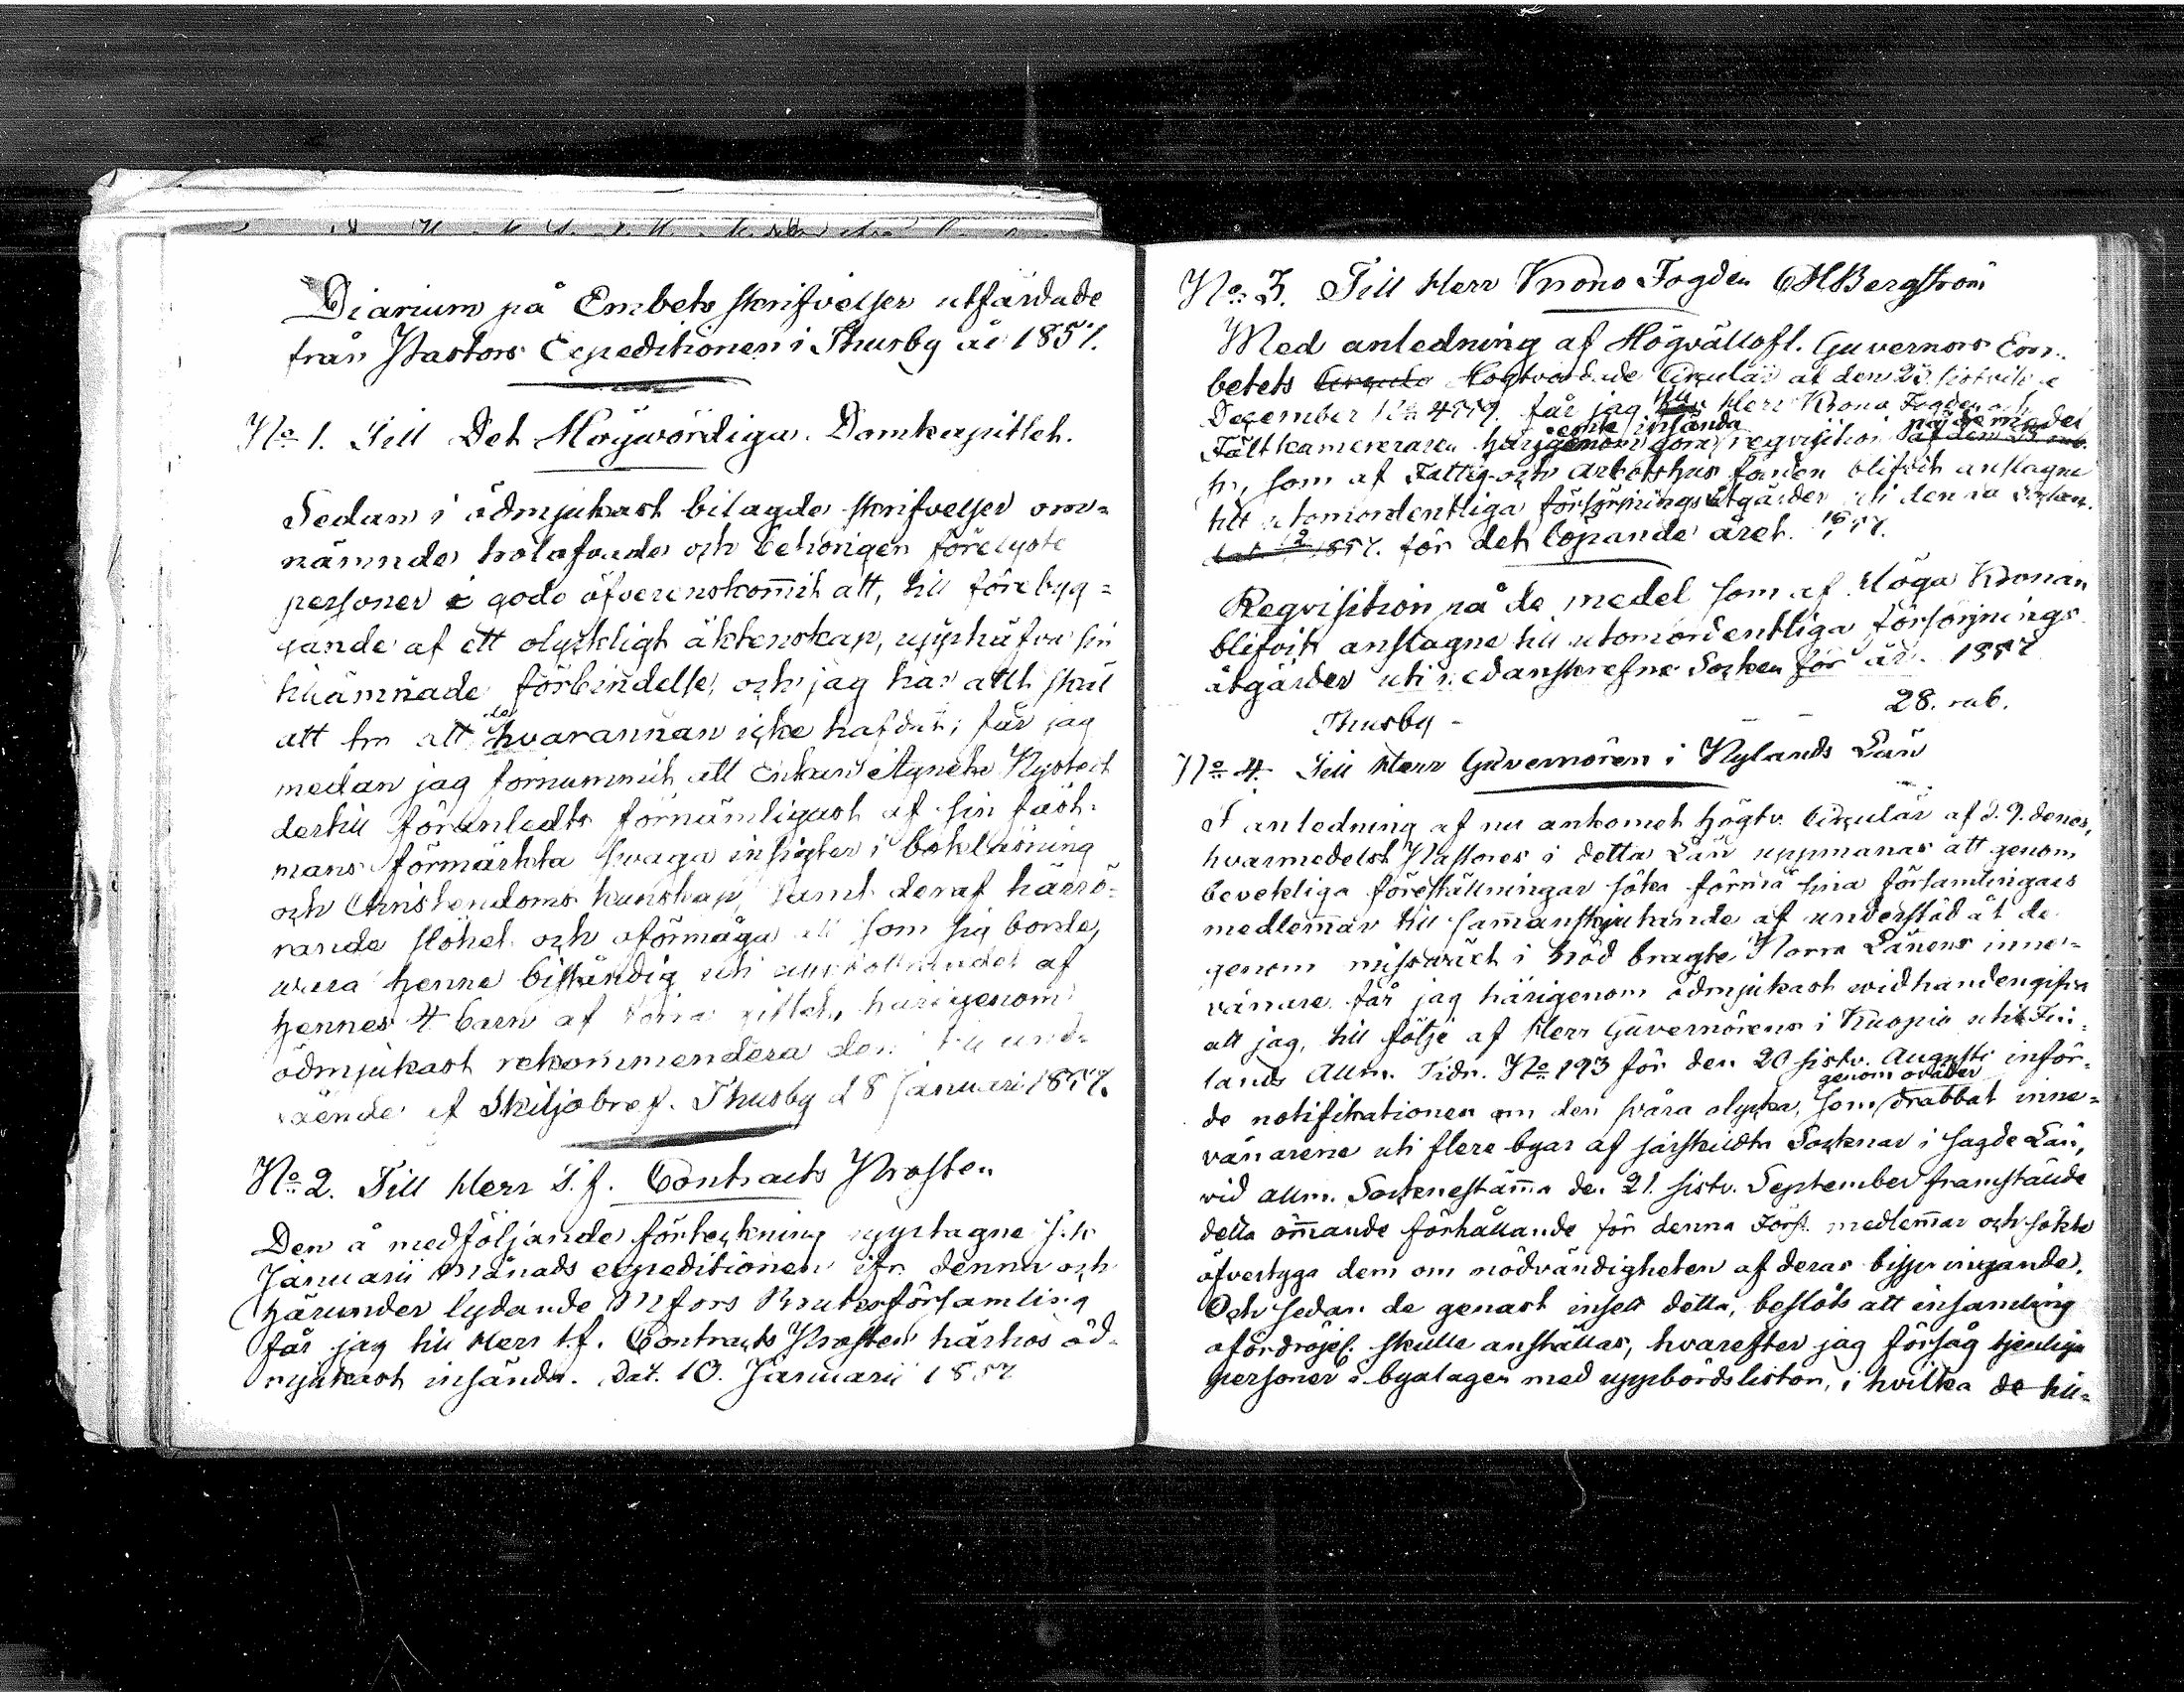 Diarium på Embets skrifvelser utfärdade
från Pastors Expeditionen i Thusby år 1857.
No 1. Till Det Högwördiga Domkapitlet.
Sedan i ödmjukast bilagde skrifvelser om-
nämnde trolofvade och behörigen förelyste
personer i godo öfverenskommit att, till förebyg-
gande af ett olyckligt äktenskap, upphäfva sin
tillämnade förbindelse, och jag har allt skäl
att tro att de hvarannan icke häfdat; får jag
medan jag förnummit att Enkan Agneta Nystedt
dertill föranledts förnämligast af sin fäst-
mans förmärkta swaga insigter i bokläsning
och Christendoms kunskap samt deraf härrö-
rande slöhet och oförmåga att som sig borde,
wara henne biständig uti uppfostrandet af
hennes 4 barn af förra giftet, härigenom
ödmjukast rekommendera dem till und-
fående af Skiljobref. Thusby d 8 Januari 1857.
No 2. Till Herr t.f. Contracts Prosten
Den å medföljande förteckning upptagne
Januarii månads expeditionen ifr. denna och
härunder lydande Bruksförsamling
får jag till Herr t.f. Contracts Prosten härhos öd-
mjukast insända. Dat. 10. Januarii 1857
No 3. Till Herr Krono Fogden Bergström
Med anledning af Högvällofl. Guvernörs Em-
betets Circulä Högtvördade Circulär af den 23. sistvikne
December No 4559. får jag till Herr Krono Fogden och
Fältkamereraren härigenom göra insända requisition på de medel
som af Fattig och Arbetshus fonden blifvit anslagne
till utomordentliga försörjnings åtgärder uti denna Socken
1857. för det löpande året.
Reqvisition på de medel som af Höga Kronan
blifvit anslagne till utomordentliga försörjnings
åtgärder uti nedanskrefne Socken för år 1857
Thusby - - - 28. rub.
No 4. Till Herr Guvernören i Nylands Län
I anledning af nu ankomet högtv. Circulär af d. 9. dennes,
hvarmedelst Pastores i detta Län uppmanas att genom
bevekliga föreställningar söka förmå sina församlingars
medlemmar till sammanskjutande af understöd åt de
genom missväxt i nöd bragte Norra Länens inne-
vånare får jag härigenom ödmjukast widhandengifva
att jag, till följe af Herr Guvernörens i Kuopio uti Fin-
lands Allm. Tidn. No 193 för den 20 sistv. Augusti införde
de notifikationen om den svåra olycka, som genom oväder drabbat inne-
vånarene uti flere byar af särskildta Socknar i sagde Län,
vid allm. Sockenestämma den 21. sistv. September framstälde
detta ömmande förhållande för denna Förs. medlemmar och sökte
öfvertyga dem om nödvändigheten af deras bispringande.
Och sedan de genast insett detta, beslöts att insamling
ofördröjel. skulle anställas, hvarefter jag försåg tjenliga
personer i byalagen med uppbördslistor, i hvilka de till-